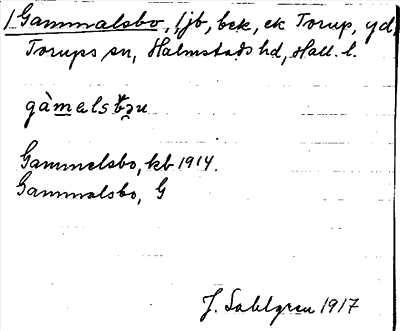 1 Gammalsbo, ljb, bek, ek Torup, yd,
Torups sn, Halmstads hd, Hall. l.
gàmalsbɔu
Gammelsbo, kb 1914.
Gammalsbo, G
J. Sahlgren 1917